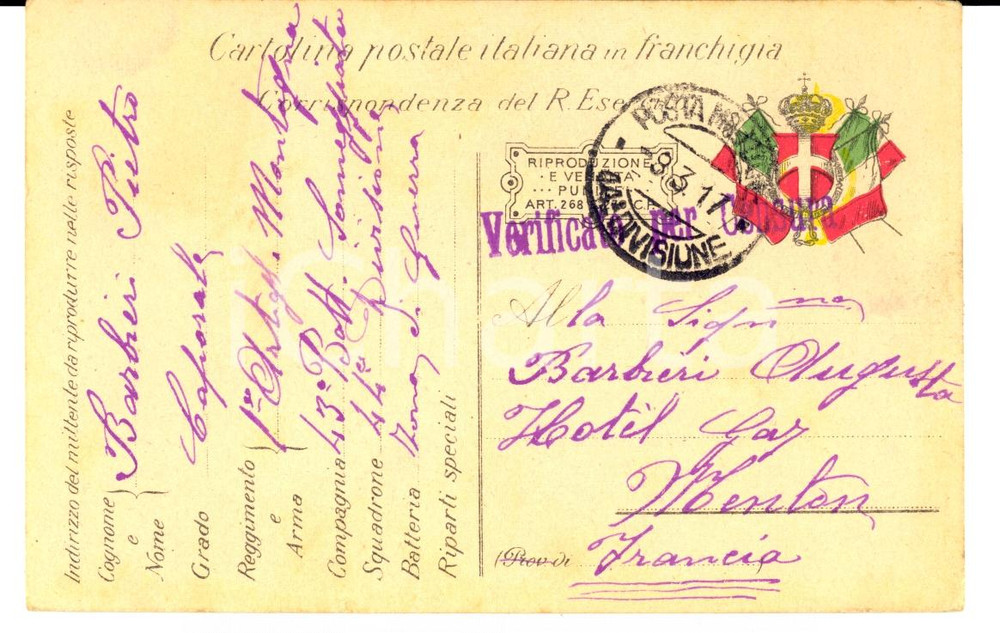 Cartolina postale italiana in franchigia
Corrispondenza del R. Esercito
RIPRODUZIONE
E VENDITA
PUNITE
ART. 268 C.P.
POSTA MILITARE
8.3.17
44ª DIVISIONE
Verificato per Censura
Alla Sigra
Barbieri Augusta
Hotel Gay
Menton
(Prov. di Francia
Indirizzo del mittente da riprodurre nelle risposte
Cognome e Nome } Barbieri Pietro
Grado Caporale
Reggimento e Arma } 1° Artigl. Montagna
Compagnia 43ª Batt. Someggiata
Squadrone 44ª Divisione
Batteria Zona di Guerra
Riparti speciali